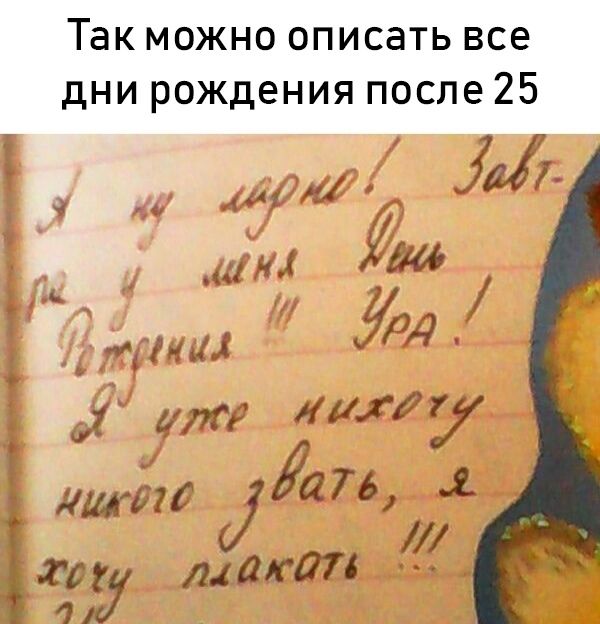 Так можно описать все
дни рождения после 25
Я ну ладно! Завт-
ра у меня День
Рождения!!! Ура!
Я уже нихочу
никого звать, я
хочу плакать!!!